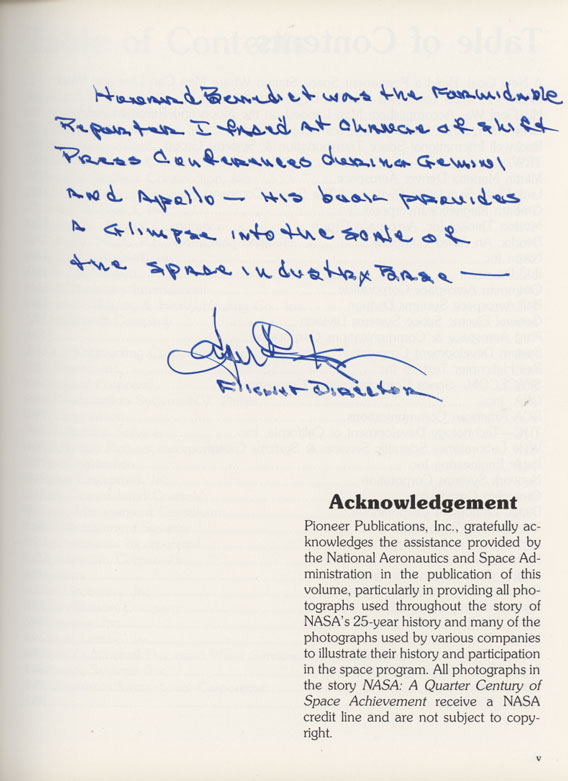 Howard Benedict was the Formidable
Reporter I faced at change of shift
Press Conferences during Gemini
and Apollo — His book provides
a Glimpse into the some of
the space industry Base —
Flight Director
Acknowledgement
Pioneer Publications, Inc., gratefully ac-
knowledges the assistance provided by
the National Aeronautics and Space Ad-
ministration in the publication of this
volume, particularly in providing all pho-
tographs used throughout the story of
NASA's 25-year history and many of the
photographs used by various companies
to illustrate their history and participation
in the space program. All photographs in
the story NASA: A Quarter Century of
Space Achievement receive a NASA
credit line and are not subject to copy-
right.
v